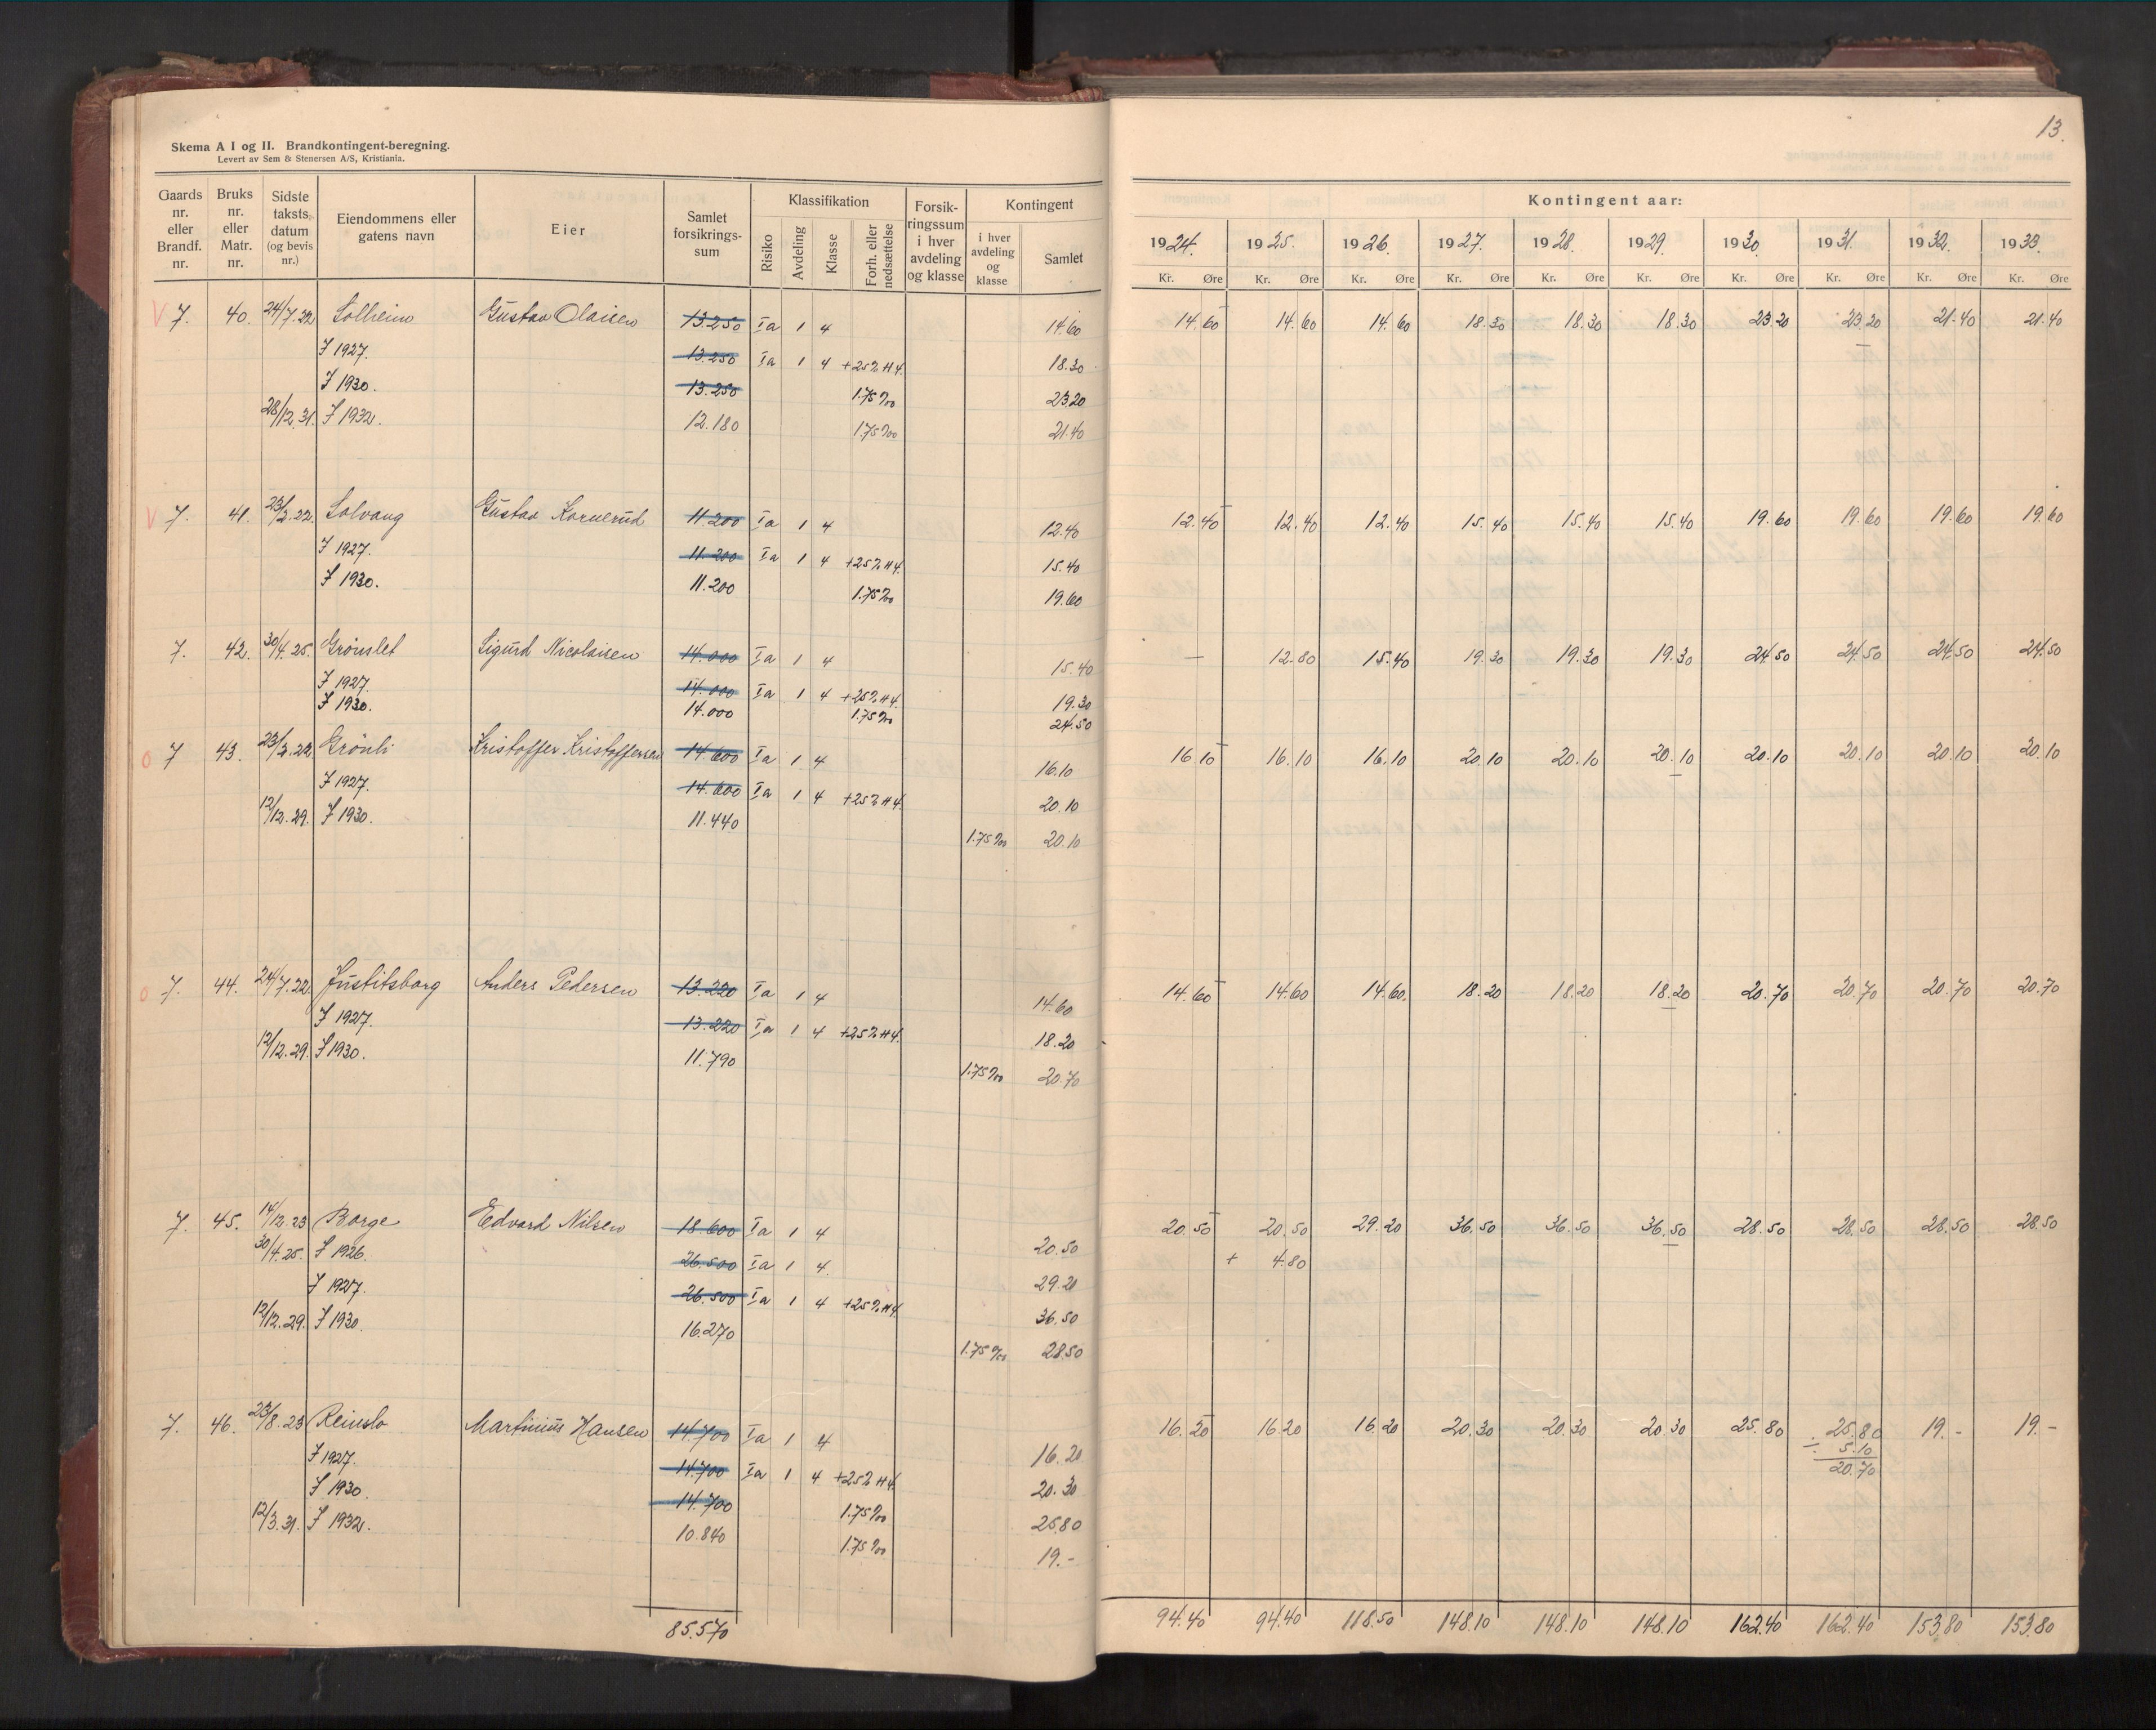 13.
Skema A I og II. Brandkontingent-beregning.
Levert av Sem & Stenersen A/S, Kristiania.
Gaards nr. eller Brandf. nr. | Bruks nr. eller Matr. nr. | Sidste taksts datum (og bevis nr.) | Eiendommens eller gatens navn | Eier | Samlet forsikrings-sum | Klassifikation | Risiko | Avdeling | Klasse | Forh. eller nedsættelse | Forsik-ringssum i hver avdeling og klasse | Kontingent | i hver avdeling og klasse | Samlet
Kontingent aar:
1924. 1925. 1926. 1927. 1928. 1929. 1930. 1931. 1932. 1933.
Kr. Øre Kr. Øre Kr. Øre Kr. Øre Kr. Øre Kr. Øre Kr. Øre Kr. Øre Kr. Øre Kr. Øre
V 7. 40. 24/7.22 Solheim Gustav Olaisen 13.250 Ia 1 4 14.60 14.60 14.60 14.60 18.30 18.30 18.30 23.20 23.20 21.40 21.40
F 1927. 13.250 Ia 1 4 +25% H4. 18.30
F 1930. 13.250 1.75‰ 23.20
28/12.31. F 1932. 12.180 1.75‰ 21.40
V 7. 41. 23/2.22. Solvang Gustav Kornerud 11.200 Ia 1 4 12.40 12.40 12.40 12.40 15.40 15.40 15.40 19.60 19.60 19.60 19.60
F 1927. 11.200 Ia 1 4 +25% H4. 15.40
F 1930. 11.200 1.75‰ 19.60
7. 42. 30/4.25. Grönslet Sigurd Nicolaisen 14.000 Ia 1 4 15.40 — 12.80 15.40 19.30 19.30 19.30 24.50 24.50 24.50 24.50
F 1927. 14.000 Ia 1 4 +25% H4. 19.30
F 1930. 14.000 1.75‰ 24.50
0 7 43. 23/2.22. Grönli Kristoffer Kristoffersen 14.600 Ia 1 4 16.10 16.10 16.10 16.10 20.10 20.10 20.10 20.10 20.10 20.10 20.10
F 1927. 14.600 Ia 1 4 +25% H4. 20.10
12/12.29. F 1930. 11.440 1.75‰ 20.10
0 7. 44. 24/7.22. Justitsborg Anders Pedersen 13.220 Ia 1 4 14.60 14.60 14.60 14.60 18.20 18.20 18.20 20.70 20.70 20.70 20.70
F 1927. 13.220 Ia 1 4 +25% H4. 18.20
12/12.29. F 1930. 11.790 1.75‰ 20.70
7. 45. 14/12.23 Borge Edvard Nilsen 18.600 Ia 1 4 20.50 20.50 20.50 29.20 36.50 36.50 36.50 28.50 28.50 28.50 28.50
30/4.25. F 1926. 26.500 Ia 1 4. 29.20 + 4.80
F 1927. 26.500 Ia 1 4 +25% H4. 36.50
12/12.29. F 1930. 16.270 1.75‰ 28.50
7. 46. 23/8.23 Reinslo Martinius Hansen 14.700 Ia 1 4 16.20 16.20 16.20 16.20 20.30 20.30 20.30 25.80 25.80 19.- 19.-
F 1927. 14.700 Ia 1 4 +25% H4. 20.30 ÷ 5.10
F 1930. 14.700 1.75‰ 25.80 20.70
12/3.31. F 1932. 10.840 1.75‰ 19.-
85.570 94.40 94.40 118.50 148.10 148.10 148.10 162.40 162.40 153.80 153.80